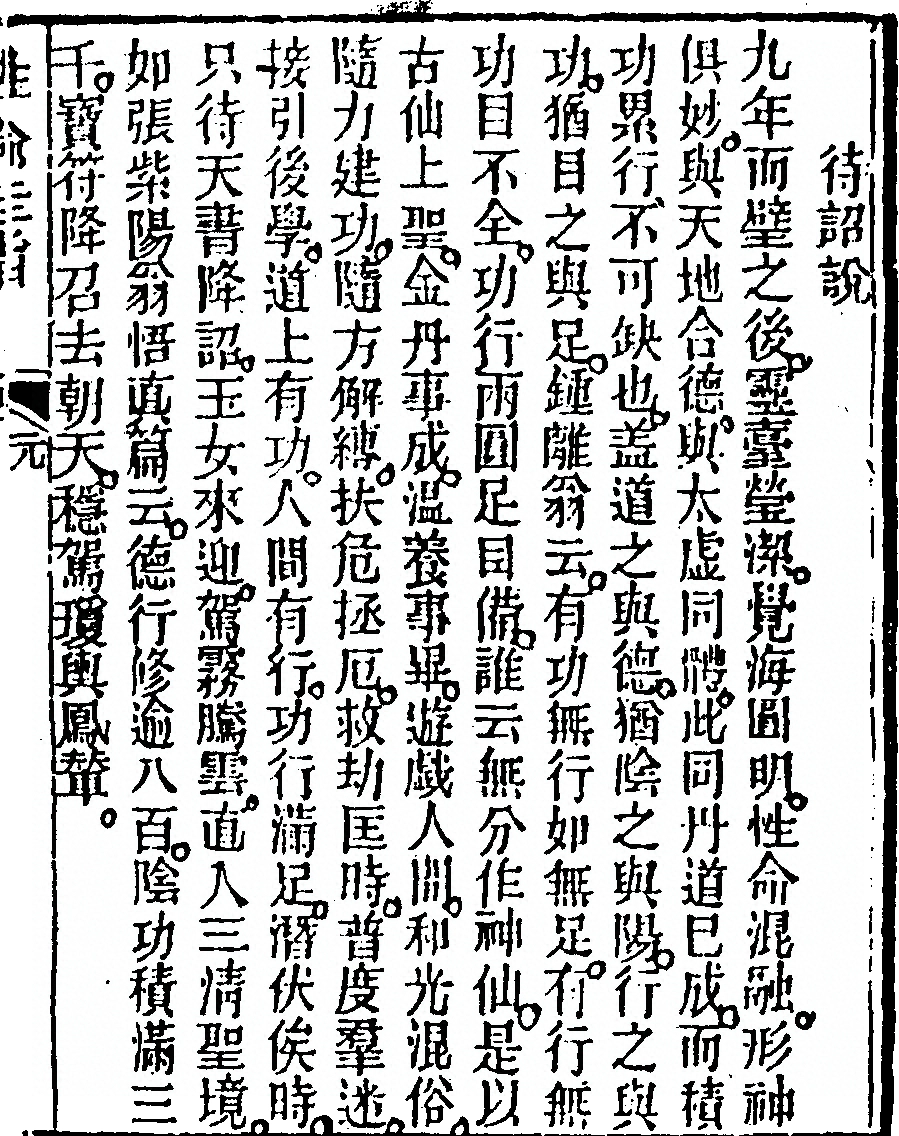 待詔說
九年而壁之後。靈臺瑩潔。覺海圓明。性命混融。形神
俱妙。與天地合德。與太虛同體。此同丹道已成。而積
功累行。不可缺也。盖道之與德。猶陰之與陽。行之與
功。猶目之與足。鍾離翁云。有功無行如無足。有行無
功目不全。功行兩圓足目備。誰云無分作神仙。是以
古仙上聖。金丹事成。温養事畢。遊戲人間。和光混俗。
隨力建功。隨方解縛。扶危拯厄。救劫匡時。普度羣迷。
接引後學。道上有功。人間有行。功行滿足。潛伏俟時。
只待天書降詔。玉女來迎。駕霧騰雲。直入三清聖境。
如張紫陽翁悟眞篇云。德行修逾八百。陰功積滿三
千。寶符降召去朝天。穩駕瓊輿鳳輦。
元